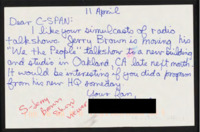 11 April
Dear C-SPAN:
I like your simulcasts of radio
talkshows. Jerry Brown is moving his
"We the People" talkshow to a new building
and studio in Oakland, CA late next month.
It would be interesting if you did a program
from his new HQ someday
Your fan,
5-Jerry
Brown